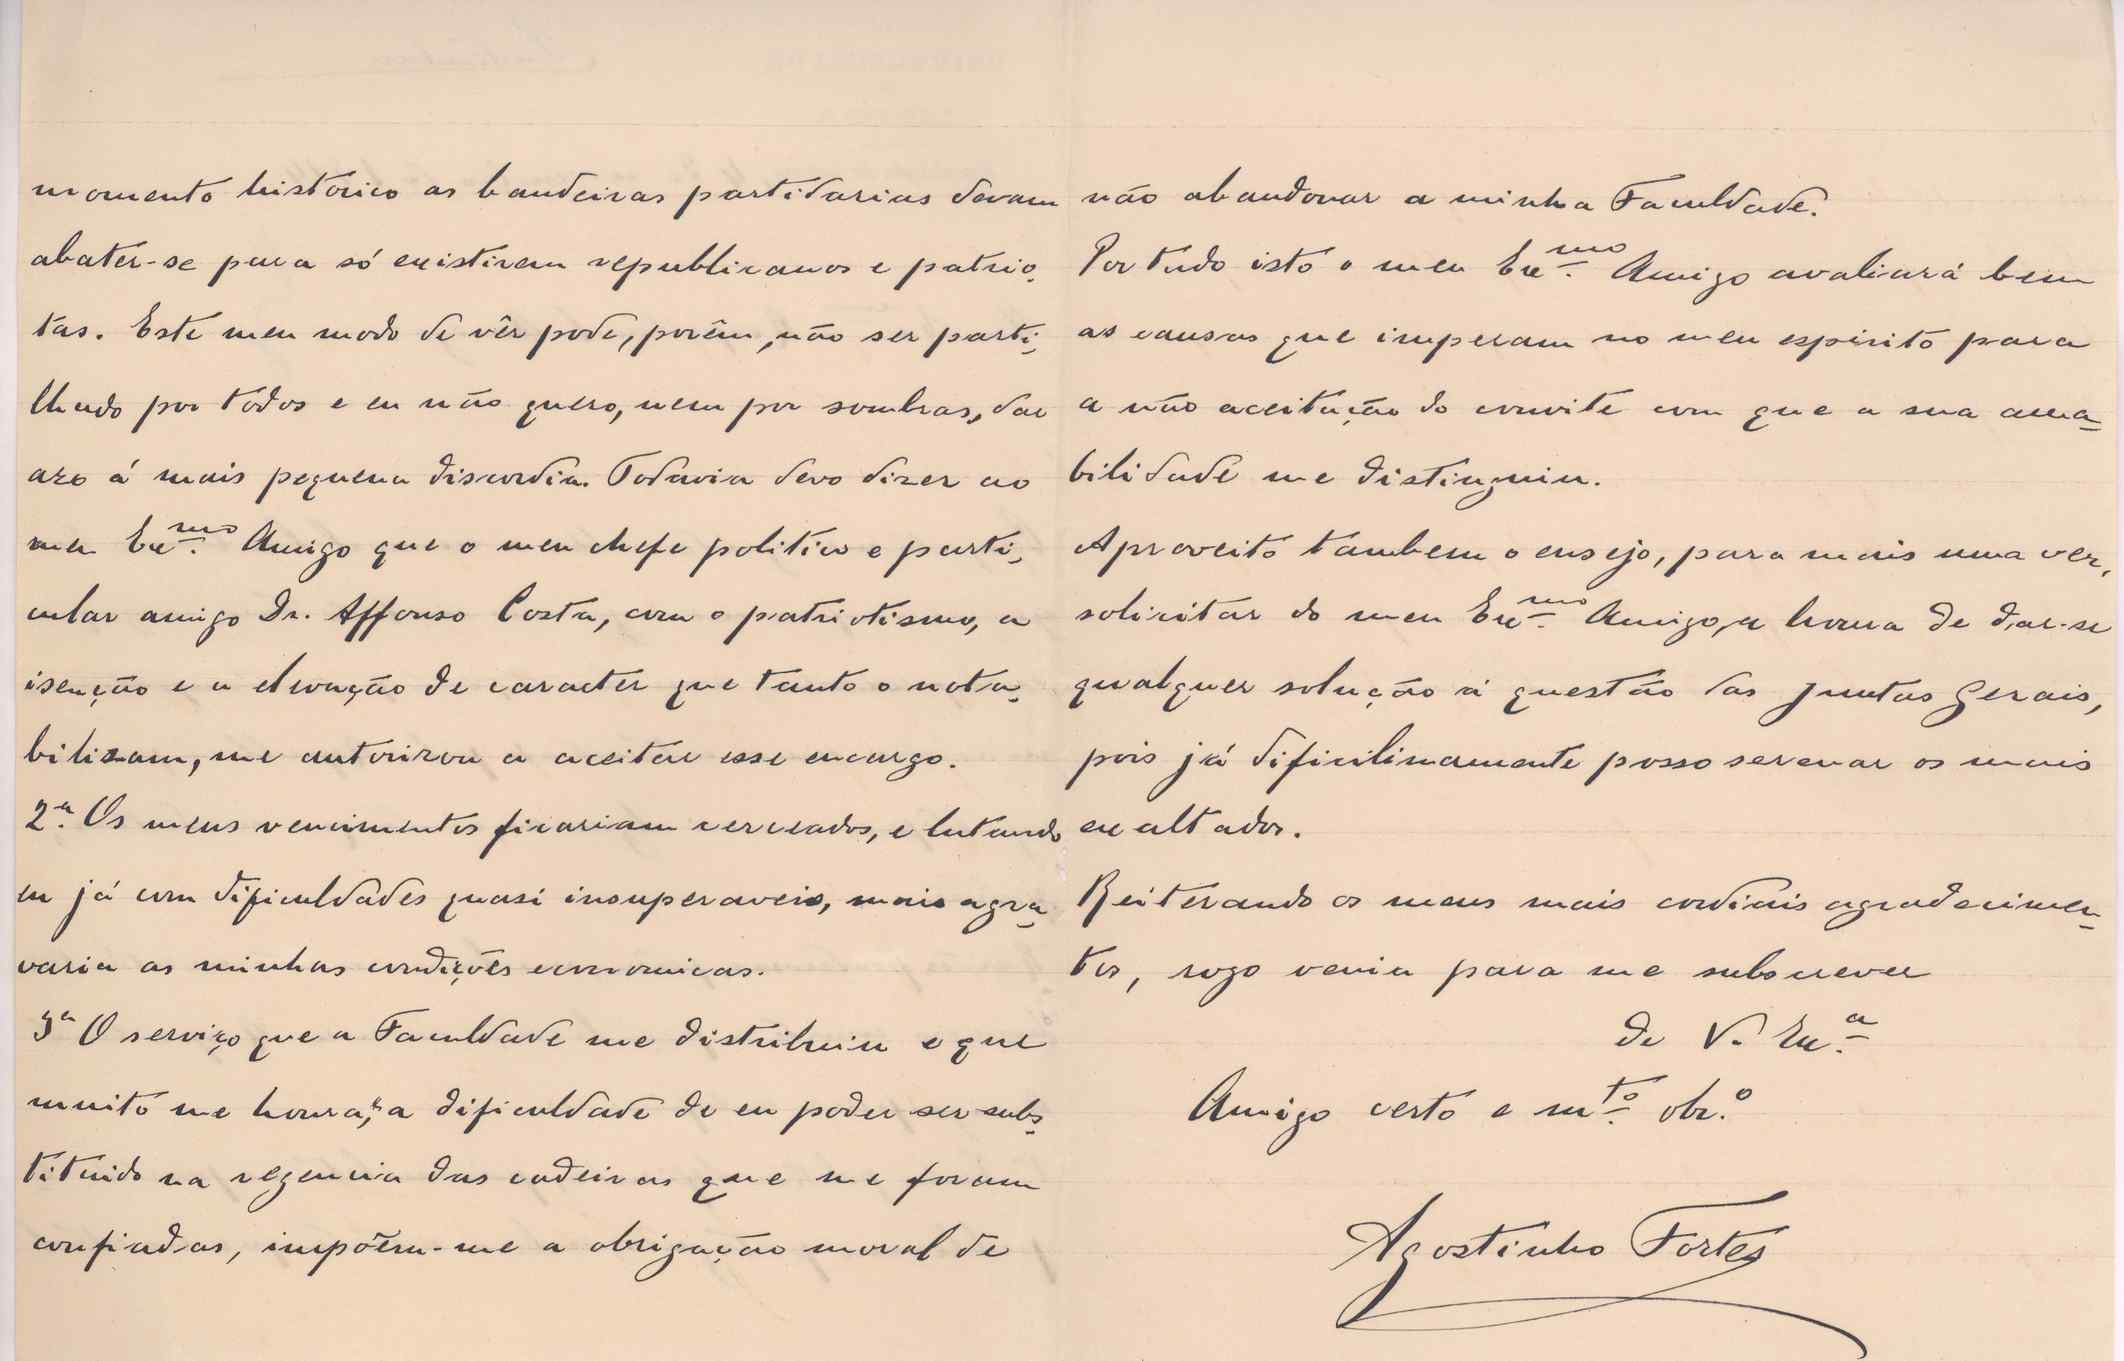 momento historico as bandeiras partidarias devam
abater-se para só existirem republicanos e patrio-
tas. Este meu modo de vêr pode, porêm, não ser parti-
lhado por todos e eu não quero, nem por sombras, dar
azo á mais pequena discordia. Todavia devo dizer ao
meu Ex.mo Amigo que o meu chefe politico e parti-
cular amigo Dr. Affonso Costa, com o patriotismo, a
isenção e a elevação de caracter que tanto o nota-
bilisam, me autorizou a aceitar esse encargo.
2.a Os meus vencimentos ficariam cerceados, e lutando
eu já com dificuldades quasi insuperaveis, mais agra-
varia as minhas condições economicas.
3a O serviço que a Faculdade me distribuiu e que
muito me honra, a dificuldade de eu poder ser subs-
tituido na regencia das cadeiras que me foram
confiadas, impõem-me a obrigação moral de
não abandonar a minha Faculdade.
Por tudo isto o meu Ex.mo Amigo avaliará bem
as causas que imperam no meu espirito para
a não aceitação do convite com que a sua ama-
bilidade me distinguiu.
Aproveito tambem o ensejo, para mais uma vez,
solicitar do meu Ex.mo Amigo, a honra de dar-se
qualquer solução á questão das Juntas Gerais,
pois já dificilimamente posso serenar os mais
exaltados.
Reiterando os meus mais cordiais agradecimen-
tos, rogo venia para me subscrever
de V. Ex.a
Amigo certo e m.to obr.o
Agostinho Fortes